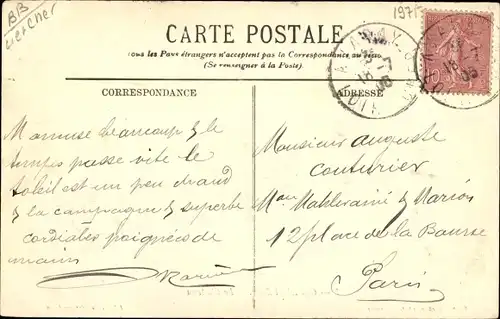 BB
1971
CARTE POSTALE
Tous les Pays étrangers n'acceptent pas la Correspondance au verso
(Se renseigner à la Poste).
CORRESPONDANCE
ADRESSE
18 -7
08
M'amuse beaucoup & le
temps passe vite le
soleil est un peu chaud
& la campagne & superbe
cordiales poignées de
mains
Monsieur auguste
couturier
Mon & Marion
12 place de la Bourse
Paris